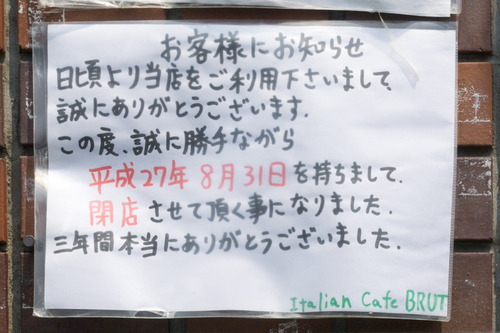 お客様にお知らせ
日頃より当店をご利用下さいまして、
誠にありがとうございます.
この度、誠に勝手ながら
平成27年 8月31日を持ちまして、
閉店させて頂く事になりました.
三年間本当にありがとうございました.
Italian Cafe BRUT